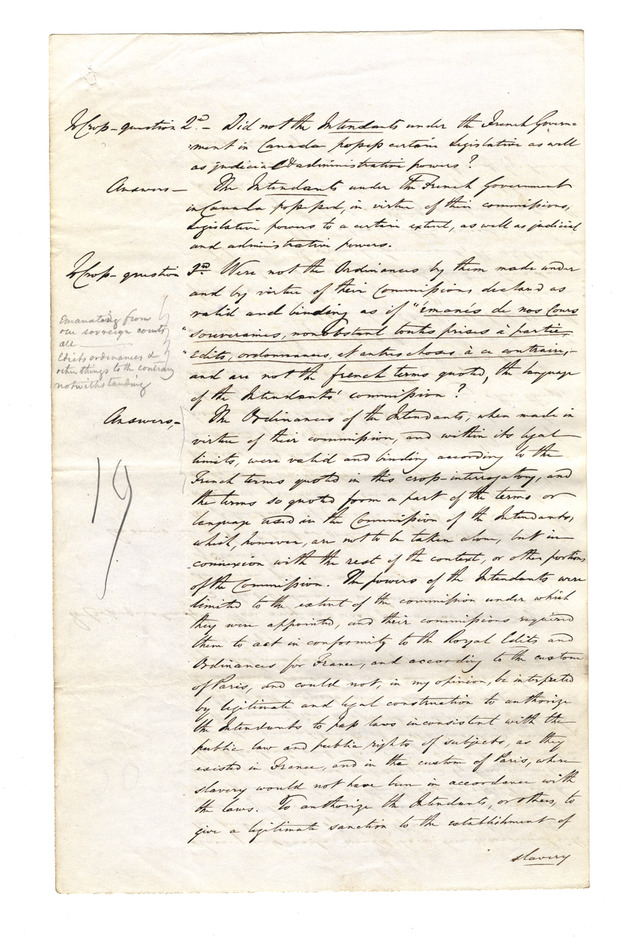 To Cross-question 2nd. - Did not the Intendants under the French Govern-
ment in Canada possess certain legislative as well
as judicial & administrative powers?
Answers - The Intendants under the French Government
in Canada possessed, in virtue of their commissions,
legislative powers to a certain extent, as well as judicial
and administrative powers.
To Cross-question 3rd Were not the Ordinances by them made under
and by virtue of their Commissions declared as
valid and binding as if "émanés de nos Cours
"souveraines, nonobstant toutes prises à partie
"Edits, ordonnances, et autres choses à ce contraire,
and are not the french terms quoted, the language
of the Intendants' commission?
Emanating from
our sovereign courts
all
Edicts ordinances &
other things to the contrary
notwithstanding
Answers - The Ordinances of the Intendants, when made in
virtue of their commission, and within its legal
limits, were valid and binding according to the
French terms quoted in this cross-interrogatory, and
the terms so quoted form a part of the terms or
language used in the Commission of the Intendants,
which, however, are not to be taken alone, but in
connexion with the rest of the context, or other portions
of the Commission. The powers of the Intendants were
limited to the extent of the commission under which
they were appointed, and their commissions required
them to act in conformity to the Royal Edits and
Ordinances for France, and according to the custom
of Paris, and could not, in my opinion, be interpreted
by legitimate and legal construction to authorize
the Intendants to pass laws inconsistent with the
public law and public rights of subjects, as they
existed in France, and in the custom of Paris, where
slavery would not have been in accordance with
the laws. To authorize the Intendants, or others, to
give a legitimate sanction to the establishment of
slavery
19